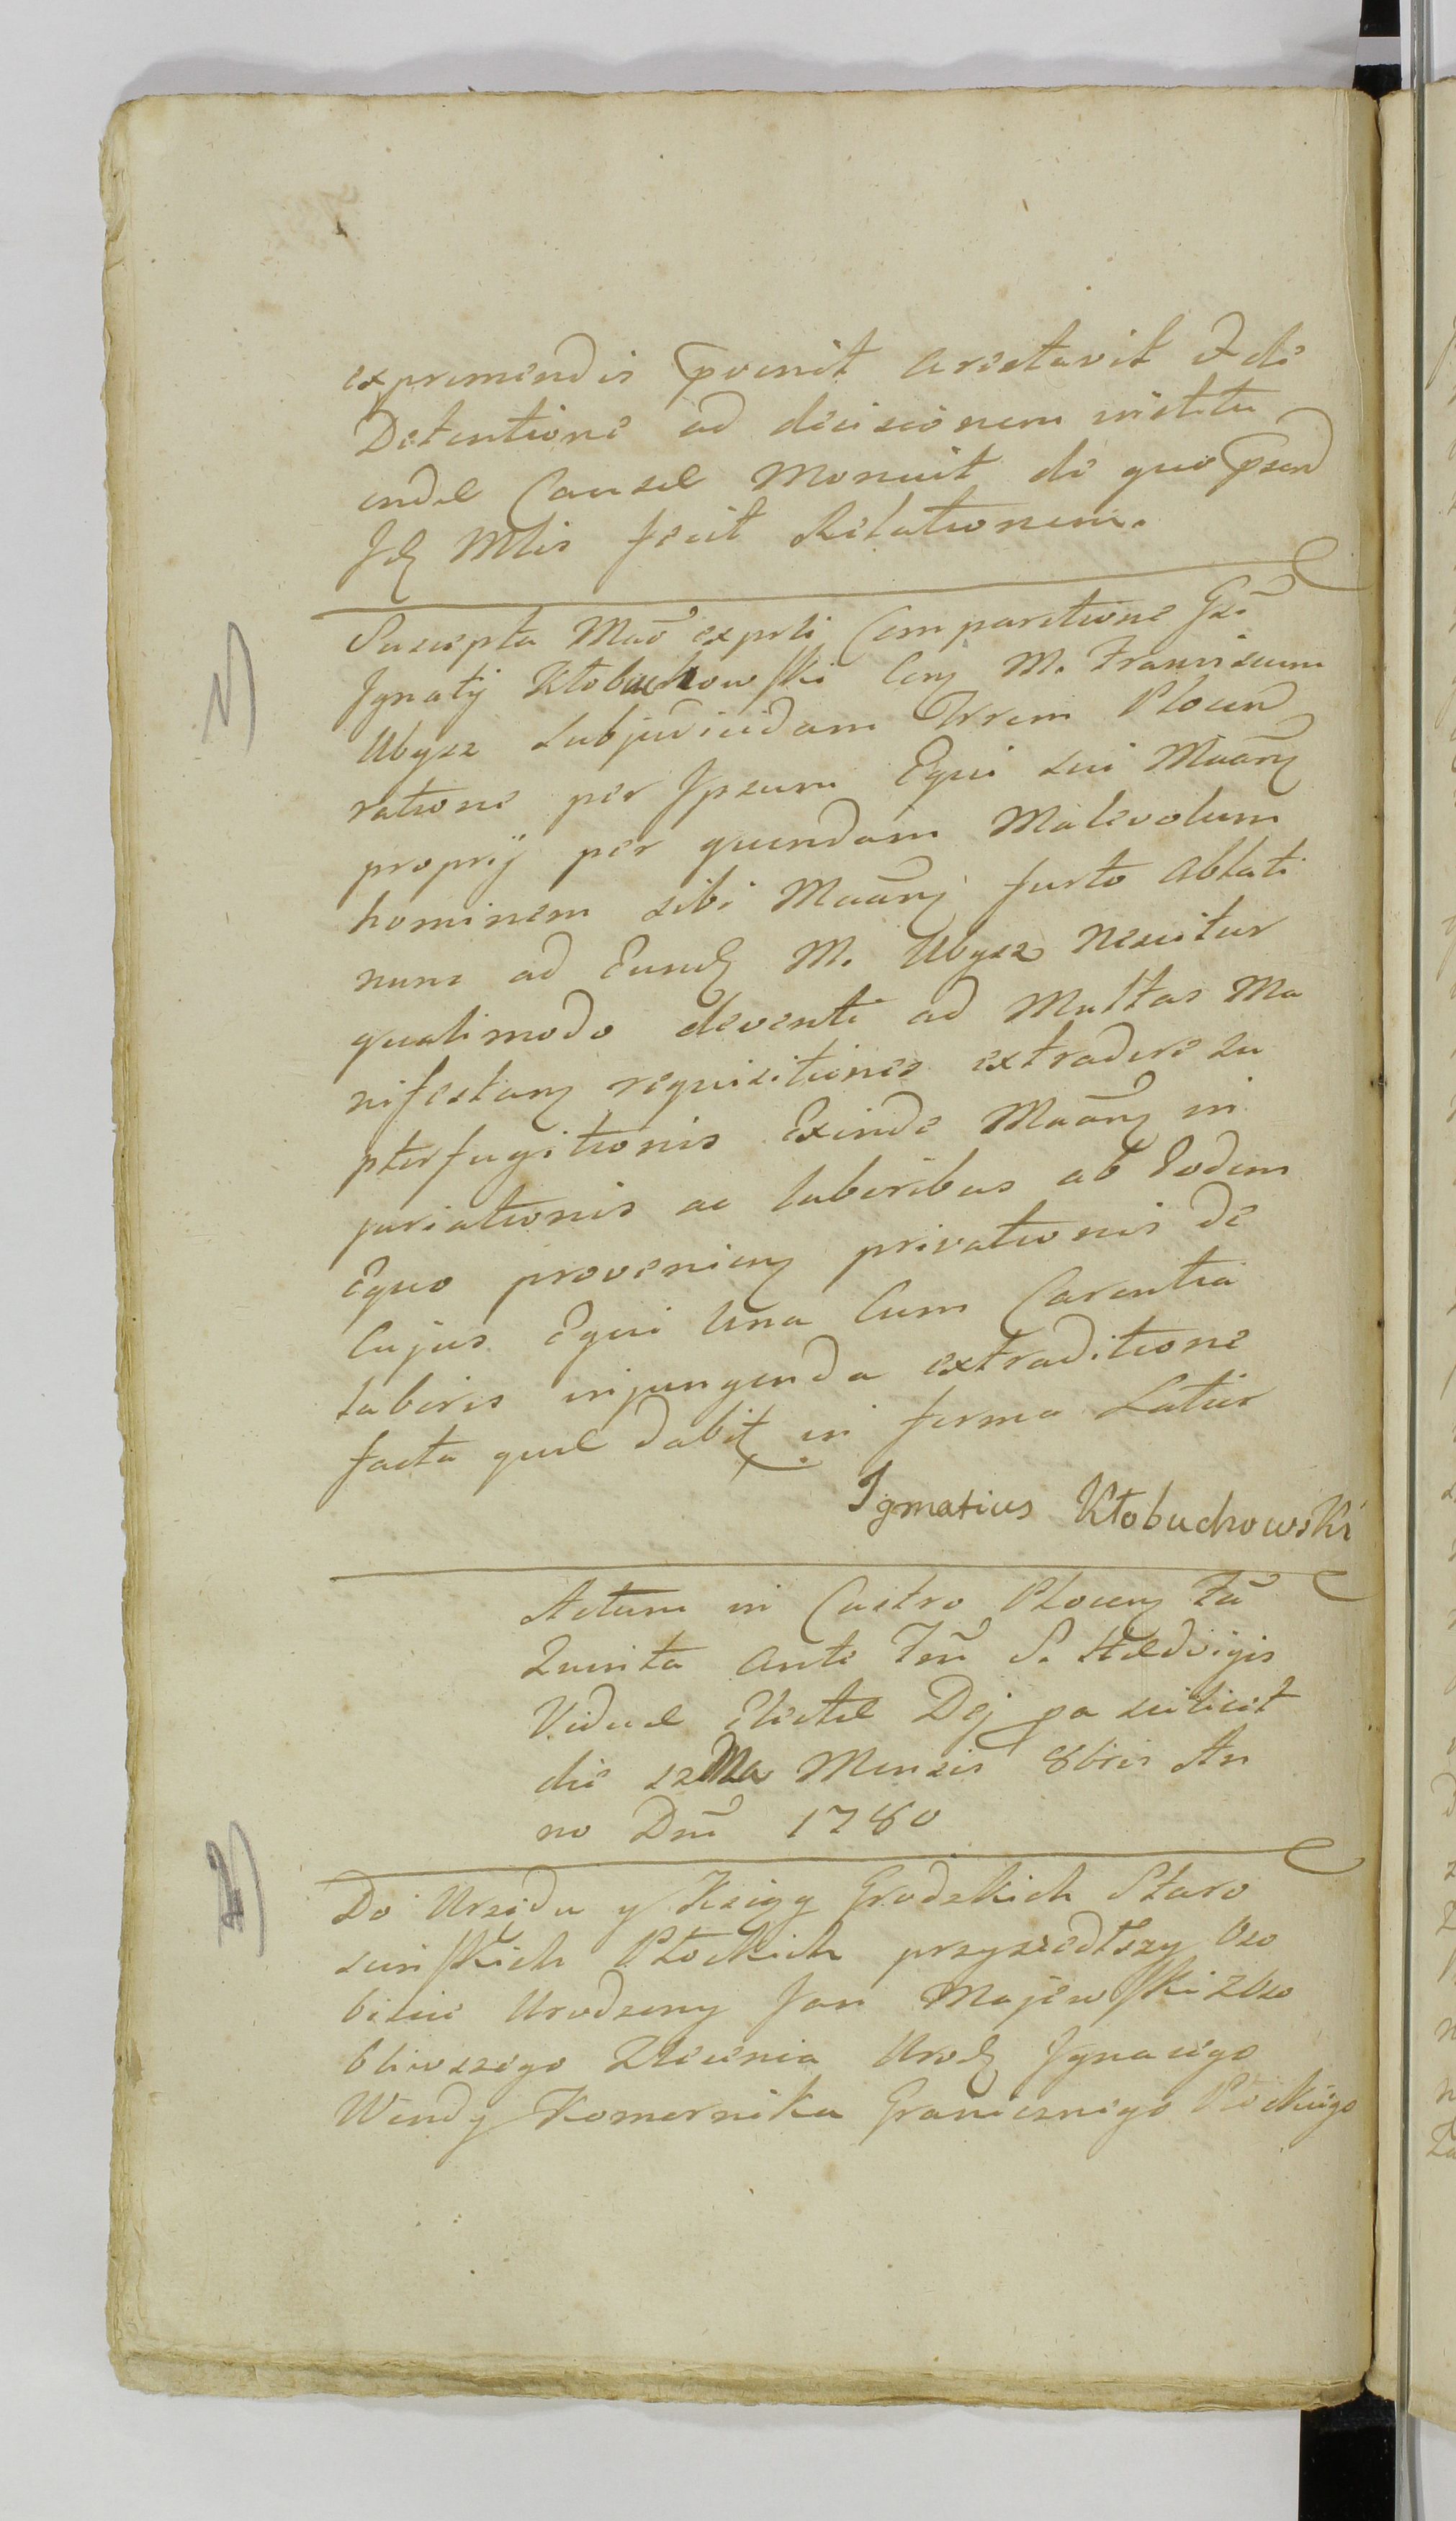 exprimendis pvenit arestavit et de
Detentione ad decisionem institu
endæ Causæ Monuit de quo psend
Idz Mtlis fecit Relationem.
1)
Suscepta Mão exprti Comparitione Gsi
Ignatij Kłobuchowski Corz M. Franciscum
Ubysz Subjudicidam Trrem Plocend
ratione per Ipsum Equi sui Maãnz
proprij per quendam Malevolum
hominem sibi Maãnz furto ablati
nunc ad Eundz M. Ubysz Nescitur
qualimodo deventi ad Multas Ma
nifestanz requisitiones extradere su
pterfugitionis Exinde Maãnz in
juriationis ac laboribus ab Eodem
Equo provenienz privationis de
Cujus Equi una Cum Carentia
laboris injungenda extraditione
facta quæ dabit in forma Latior
Ignatius Kłobuchowski
Actum in Castro Plocenz Fã
Quinta ante Fm̃ S. Hedvigis
Viduæ Electæ Dej pa scilicet
die 12Ma Mensis 8bris An
no Dnĩ 1780
2)
Do Urzędu y Xsiąg Grodzkich Staro
scinskich Płockich przyszedłszy Oso
biscie Urodzony Jan Majewski z Oso
bliwszego Zlecenia Urodz Ignacego
Wendy Komornika Granicznego Płockiego